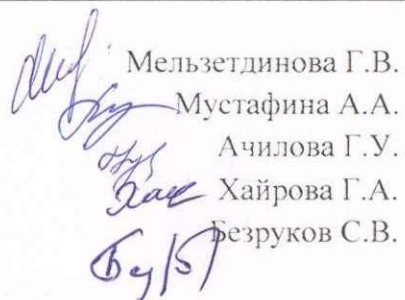 Мельзетдинова Г.В.
Мустафина А.А.
Ачилова Г.У.
Хайрова Г.А.
Безруков С.В.